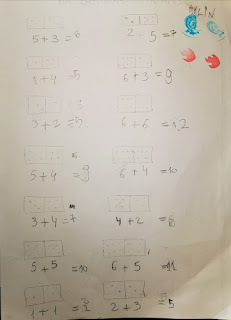 AYLİN
5+3=8
2+5=7
1+4=5
6+3=9
3+2=5
6+6=12
5+4=9
6+4=10
3+4=7
4+2=
5+5=10
6+5=11
1+1=2
2+3=5